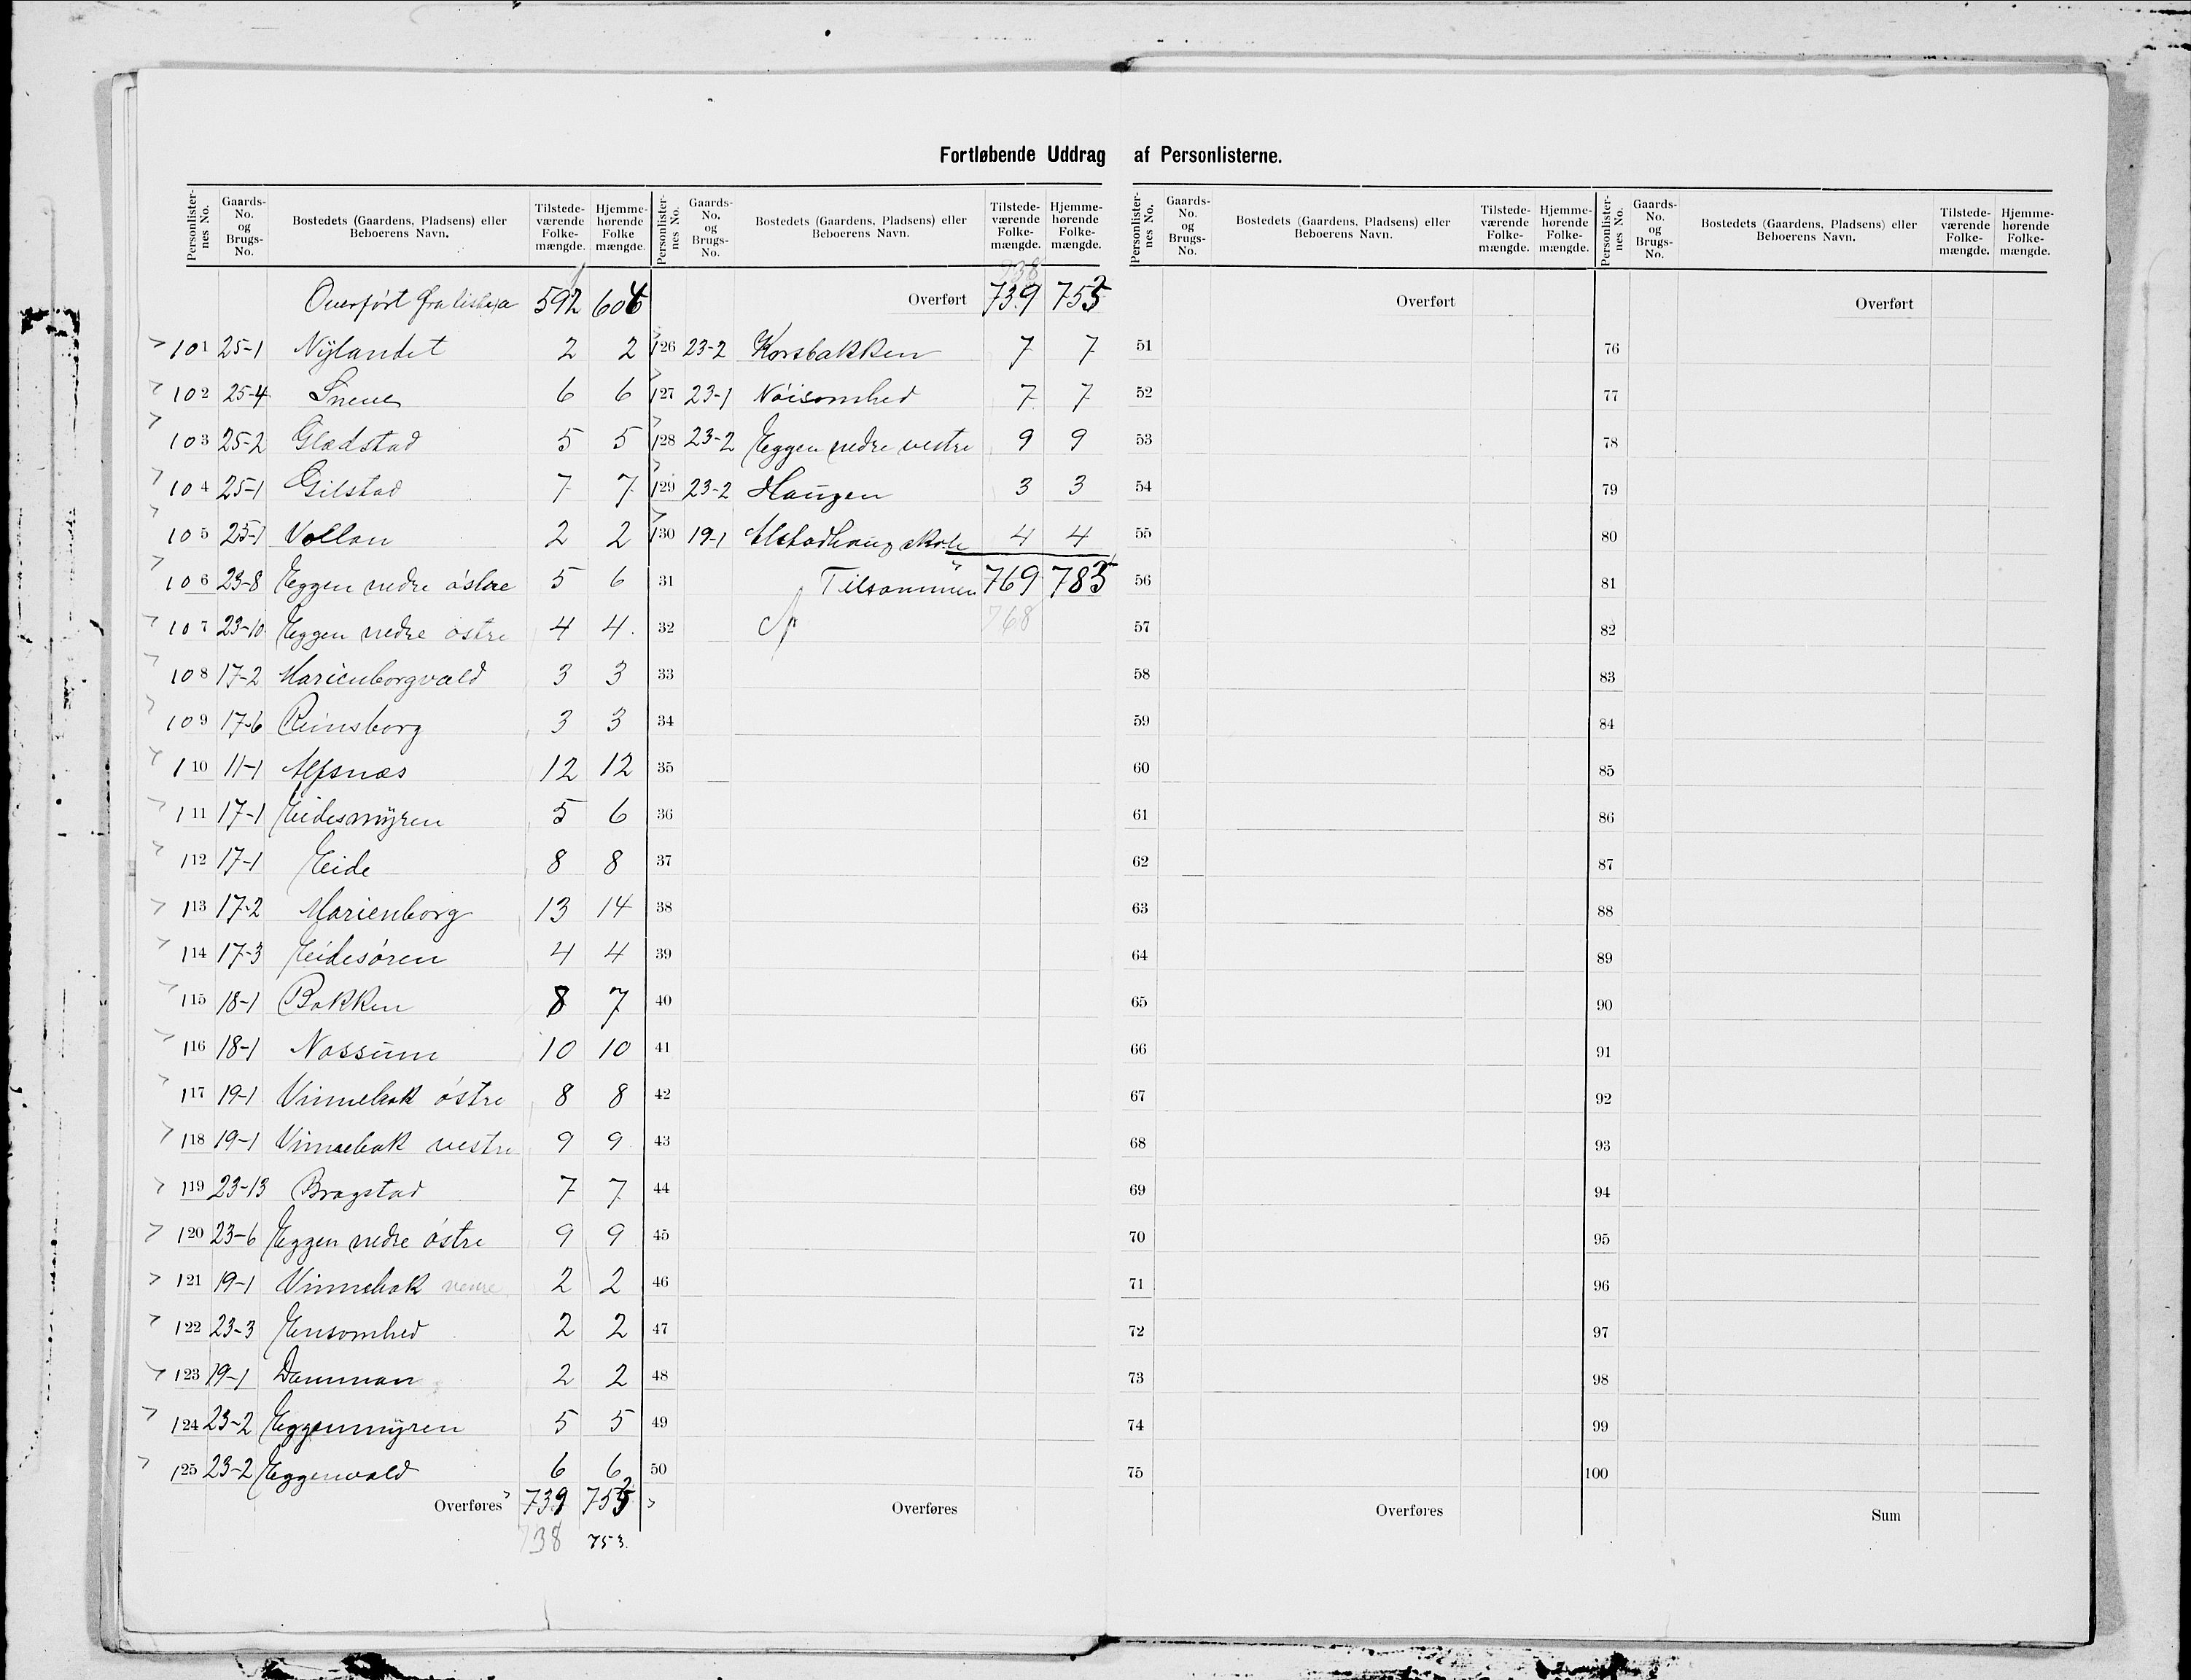 Fortløbende Uddrag af Personlisterne.
Personlister-nes No. | Gaards-No. og Brugs-No. | Bostedets (Gaardens, Pladsens) eller Beboerens Navn. | Tilstede-værende Folke-mængde. | Hjemme-hørende Folke mængde.
Overført fra liste 592 604
101 25-1 Nylandet 2 2
102 25-4 Sneve 6 6
103 25-2 Gladstad 5 5
104 25-1 Gilstad 7 7
105 25-1 Vollan 2 2
106 23-8 Eggen nedre østre 5 6
107 23-10 Eggen nedre østre 4 4
108 17-2 Marienborgvald 3 3
109 17-6 Reinsborg 3 3
110 11-1 Alfsnæs 12 12
111 17-1 Eidesmyren 5 6
112 17-1 Eide 8 8
113 17-2 Marienborg 13 14
114 17-3 Eidesøren 4 4
115 18-1 Bakken 8 7
116 18-1 Nossum 10 10
117 19-1 Vinnebak østre 8 8
118 19-1 Vinnebak vestre 9 9
119 23-13 Bragstad 7 7
120 23-6 Eggen nedre østre 9 9
121 19-1 Vinnebak 2 2
122 23-3 Ensomhed 2 2
123 19-1 Damman 2 2
124 23-2 Eggenmyren 5 5
125 23-2 Eggenvald 6 6
Overføres 739 753
738 753.
Personlister-nes No. | Gaards-No. og Brugs-No. | Bostedets (Gaardens, Pladsens) eller Beboerens Navn. | Tilstede-værende Folke-mængde. | Hjemme-hørende Folke-mængde.
738
Overført 739 753
126 23-2 Korsbakken 7 7
127 23-1 Nøisomhed 7 7
128 23-2 Eggen nedre vestre 9 9
129 23-2 Haugen 3 3
130 19-1 Alstadhaug skole 4 4
31 Tilsammen 769 783
32 768
33
34
35
36
37
38
39
40
41
42
43
44
45
46
47
48
49
50
Overføres
Personlister-nes No. | Gaards-No. og Brugs-No. | Bostedets (Gaardens, Pladsens) eller Beboerens Navn. | Tilstede-værende Folke-mængde. | Hjemme-hørende Folke-mængde.
Overført
51
52
53
54
55
56
57
58
59
60
61
62
63
64
65
66
67
68
69
70
71
72
73
74
75
Overføres
Personlister-nes No. | Gaards-No. og Brugs-No. | Bostedets (Gaardens, Pladsens) eller Beboerens Navn. | Tilstede-værende Folke-mængde. | Hjemme-hørende Folke-mængde.
Overført
76
77
78
79
80
81
82
83
84
85
86
87
88
89
90
91
92
93
94
95
96
97
98
99
100
Sum